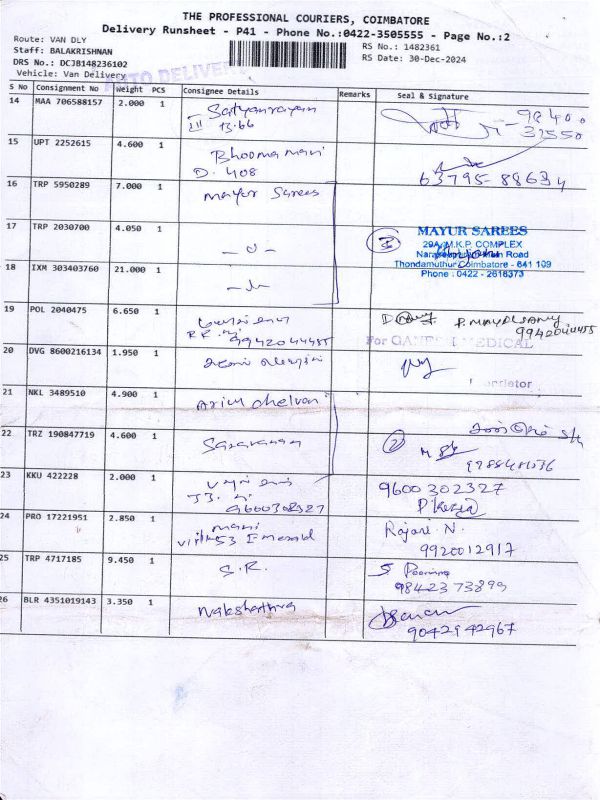 THE PROFESSIONAL COURIERS, COIMBATORE
Delivery Runsheet - P41 - Phone No.:0422-3505555 - Page No.:2
Route: VAN DLY
Staff: BALAKRISHNAN
RS No.: 1482361
DRS No.: DCJB148236102
RS Date: 30-Dec-2024
Vehicle: Van Delivery
AUTO DELIVERY
S No Consignment No Weight PCS Consignee Details Remarks Seal & signature
14 MAA 706588157 2.000 1 Satyanrayan
III 13.66
98400
32550
15 UPT 2252615 4.600 1 Bhooma mani
D. 408
63795-88634
16 TRP 5950289 7.000 1 mayur Sarees
17 TRP 2030700 4.050 1
3
MAYUR SAREES
29A, M.K.P. COMPLEX
Road
Thondamuthur, Coimbatore - 641 109
Phone : 0422 - 2618373
18 IXM 303403760 21.000 1
19 POL 2040475 6.650 1
9942044455
P. MAYALSAMY
9942044455
For GANESH MEDICAL
20 DVG 8600216134 1.950 1
Proprietor
21 NKL 3489510 4.900 1 Arivu chelvan
22 TRZ 190847719 4.600 1 Saravanan
2
23 KKU 422228 2.000 1
9600302327
9600302327
24 PRO 17221951 2.850 1 mani
53 Emerald
Rajani. N.
9920012917
25 TRP 4717185 9.450 1 S.R.
S Poornima
98423 73899
26 BLR 4351019143 3.350 1 Nakshathra
9042942967